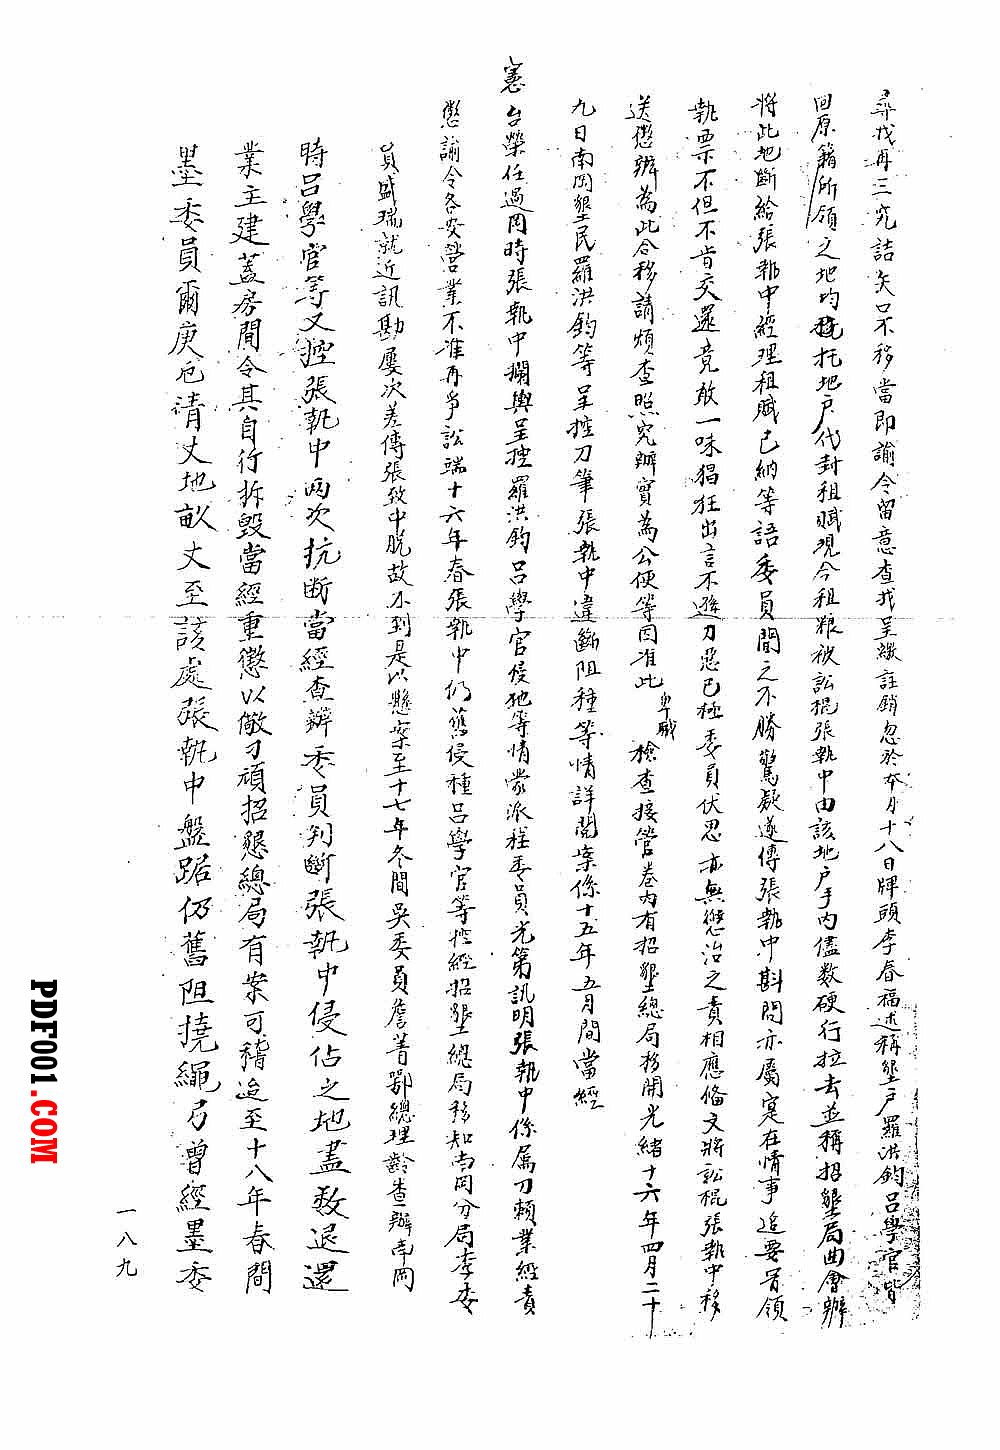 尋找再三究詰矢口不移當即諭令留意查找呈繳註銷忽於本月十八日牌頭李春福述稱墾戶羅洪鈞呂學官皆
回原籍所領之地均托地戶代封租賦現今租糧被訟棍張執中由該地戶手內儘數硬行拉去並稱招墾局曲會辦
將此地斷給張執中經理租賦已納等語委員聞之不勝驚疑遂傳張執中斟問亦屬寔在情事追要首領
執票不但不肯交還竟敢一味猖狂出言不遜刀惡已極委員伏思亦無懲治之責相應備文將訟棍張執中移
送懲辦為此合移請煩查照究辦實為公便等因准此卑職檢查接管卷內有招墾總局移開光緒十六年四月二十
九日南岡墾民羅洪鈞等呈控刀筆張執中違斷阻種等情詳閱案係十五年五月間當經
憲台榮任過岡時張執中攔輿呈控羅洪鈞呂學官侵地等情蒙派程委員光第訊明張執中係屬刀賴業經責
懲諭令各安營業不准再爭訟端十六年春張執中仍舊侵種呂學官等控經招墾總局移知南岡分局李委
員盛瑞就近訊勘屢次差傳張致中脫故不到是以懸案至十七年冬間吳委員詹菁鄂總理齡查辦南岡
時呂學官等又控張執中两次抗斷當經查辦委員判斷張執中侵佔之地盡数退還
業主建蓋房間令其自行拆毀當經重懲以儆刁頑招懇總局有案可稽迨至十八年春間
墨委員爾庚厄清丈地畝丈至該處張執中盤踞仍舊阻撓繩弓曾經墨委
一八九
PDF001.COM